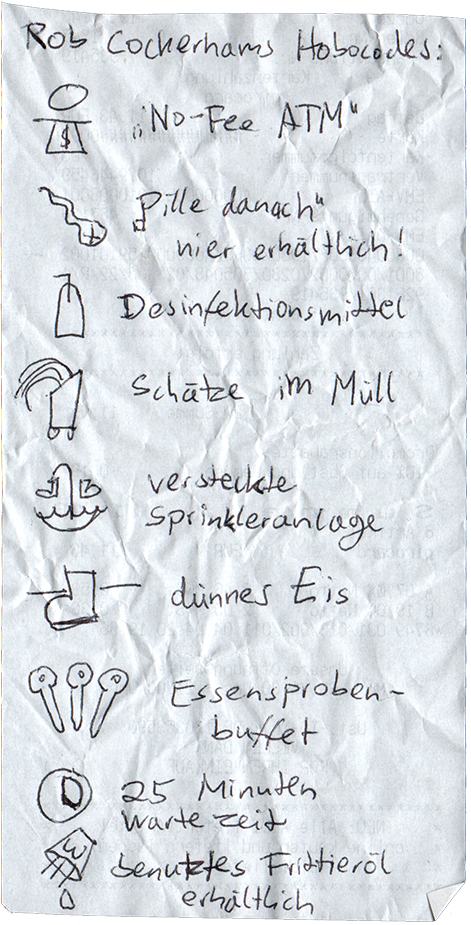 Rob Cockerhams Hobocodes:
$
„No-Fee ATM“
„Pille danach“
hier erhältlich!
Desinfektionsmittel
Schätze im Müll
versteckte
Sprinkleranlage
dünnes Eis
Essensproben-
buffet
25 Minuten
Wartezeit
benutztes Frittieröl
erhältlich